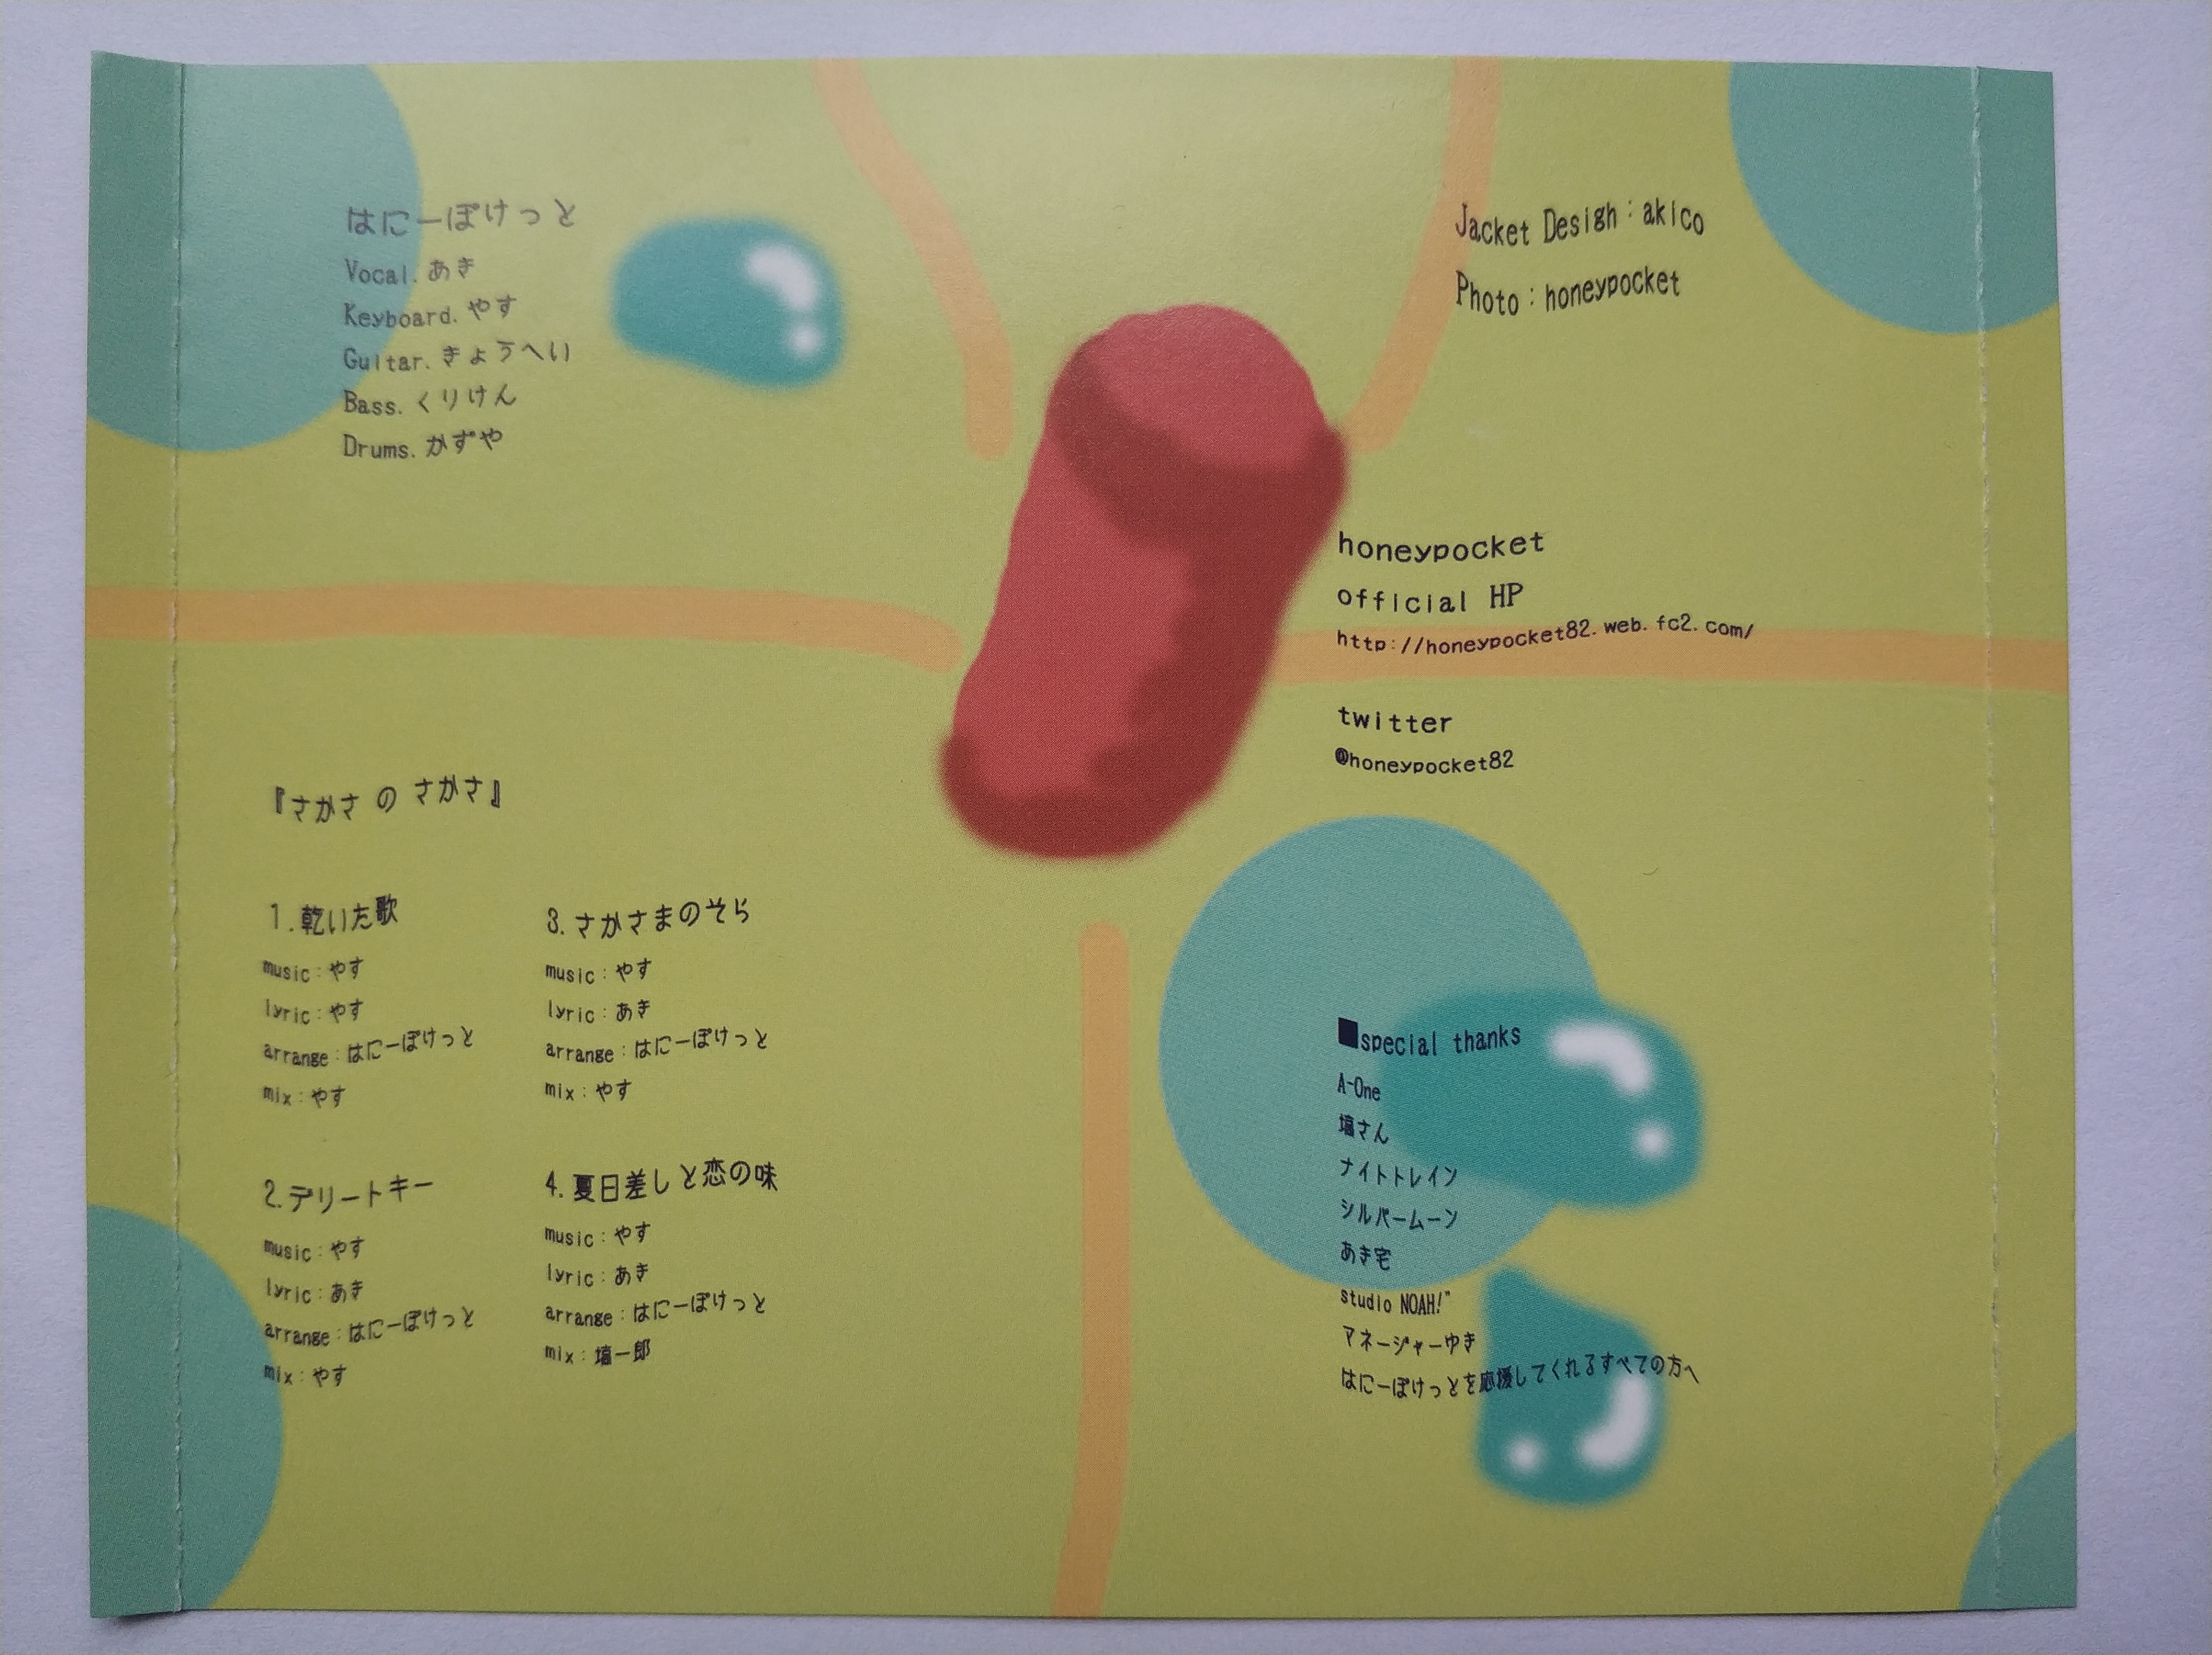 はにーぽけっと
Vocal. あき
Keyboard. やす
Guitar. きょうへい
Bass. くりけん
Drums. かずや
Jacket Desigh：akico
Photo：honeypocket
honeypocket
official HP
http://honeypocket82.web.fc2.com/
twitter
@honeypocket82
『さかさ の さかさ』
1.乾いた歌
music：やす
lyric：やす
arrange：はにーぽけっと
mix：やす
2.デリートキー
music：やす
lyric：あき
arrange：はにーぽけっと
mix：やす
3.さかさまのそら
music：やす
lyric：あき
arrange：はにーぽけっと
mix：やす
4.夏日差しと恋の味
music：やす
lyric：あき
arrange：はにーぽけっと
mix：塙一郎
■special thanks
A-One
塙さん
ナイトトレイン
シルバームーン
あき宅
studio NOAH!"
マネージャーゆき
はにーぽけっとを応援してくれるすべての方へ